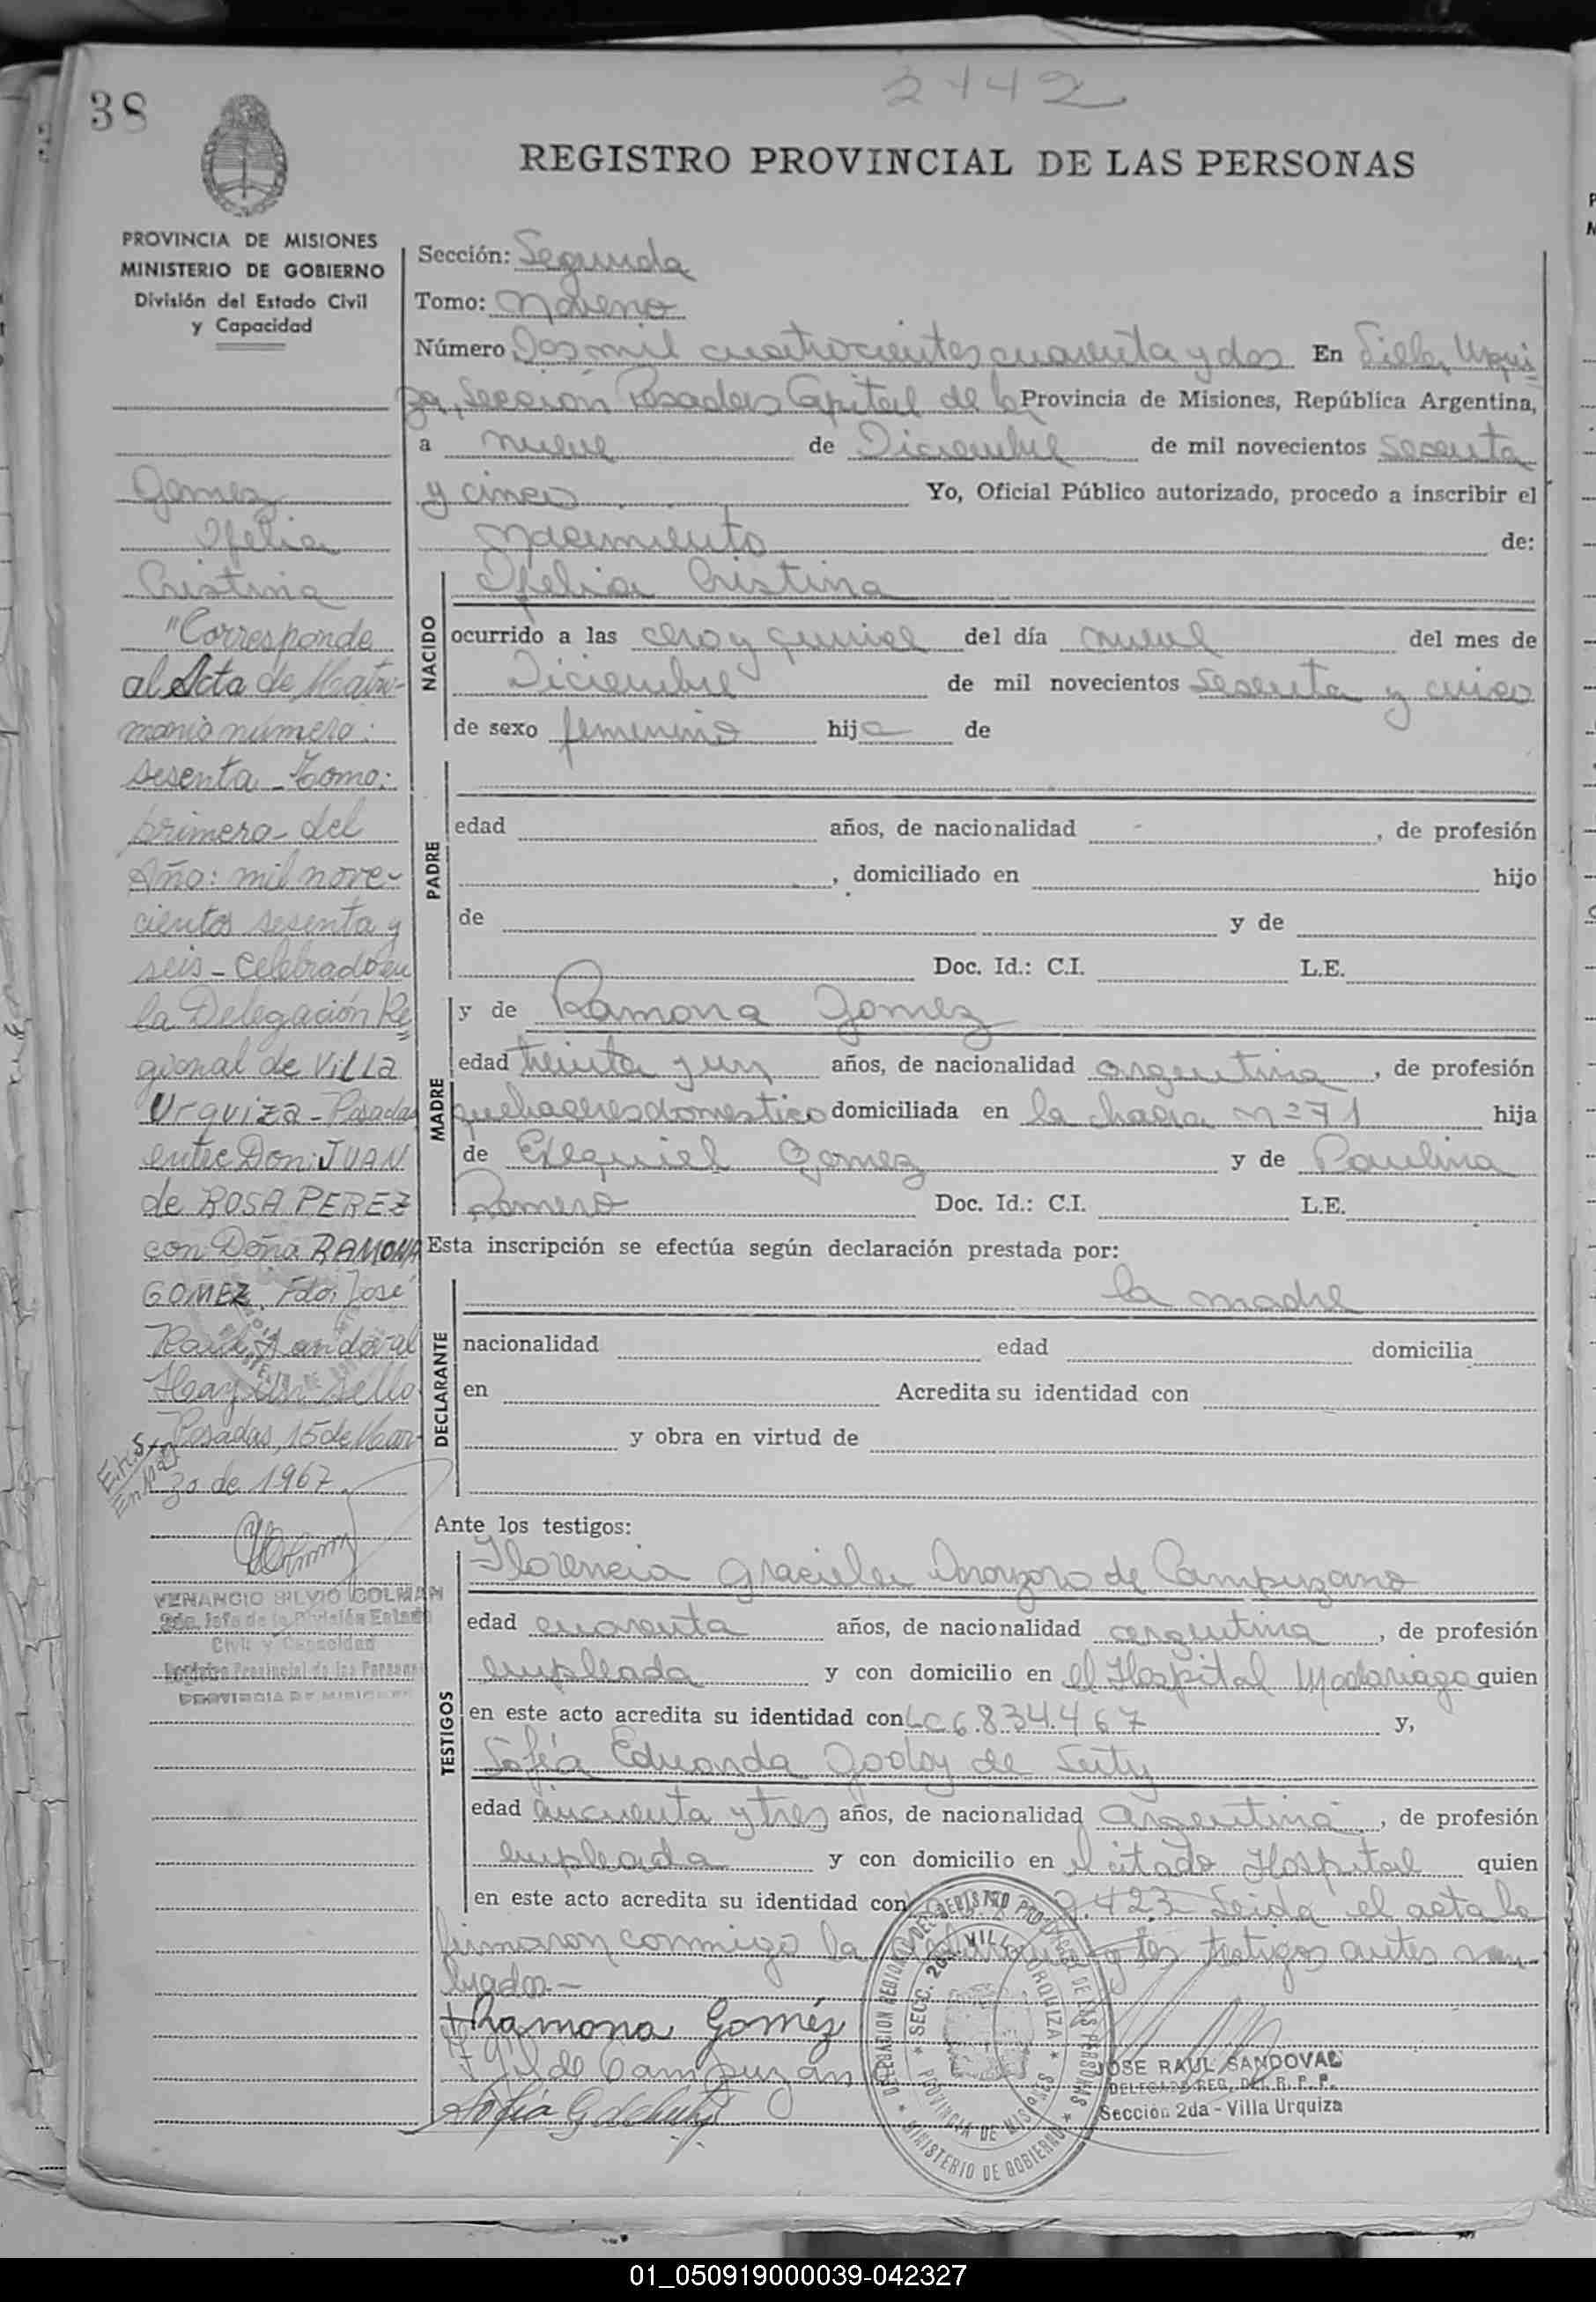 38
2442
REGISTRO PROVINCIAL DE LAS PERSONAS
PROVINCIA DE MISIONES
MINISTERIO DE GOBIERNO
División del Estado Civil
y Capacidad
Gomez
Ofelia
Cristina
"Corresponde
al Acta de Matri-
monio número:
sesenta - Tomo:
primero - del
Año: mil nove-
cientos sesenta y
seis - Celebrado en
la Delegación Re
gional de VILLA
Urquiza - Posadas
entre Don: JUAN
de ROSA PEREZ
con Doña RAMONA
GOMEZ. Fdo: José
Raúl Sandoval
Hay un sello
Posadas, 15 de Mar-
zo de 1967
VENANCIO SILVIO COLMAN
2do. Jefe de la División Estado
Civil y Capacidad
Registro Provincial de las Personas
PROVINCIA DE MISIONES
Sección: Segunda
Tomo: Noveno
Número Dos mil cuatrocientos cuarenta y dos En Villa Urqui
za, Sección Posadas Capital de la Provincia de Misiones, República Argentina,
a nueve de Diciembre de mil novecientos sesenta
y cinco Yo, Oficial Público autorizado, procedo a inscribir el
nacimiento de:
NACIDO
Ofelia Cristina
ocurrido a las cero y quince del día nueve del mes de
Diciembre de mil novecientos sesenta y cinco
de sexo femenino hija de
PADRE
edad años, de nacionalidad , de profesión
, domiciliado en hijo
de y de
Doc. Id.: C.I. L.E.
MADRE
y de Ramona Gomez
edad treinta y un años, de nacionalidad argentina, de profesión
quehaceres domestico domiciliada en la chacra nº 71 hija
de Exequiel Gomez y de Paulina
Romero Doc. Id.: C.I. L.E.
Esta inscripción se efectúa según declaración prestada por:
DECLARANTE
la madre
nacionalidad edad domicilia
en Acredita su identidad con
y obra en virtud de
Ante los testigos:
TESTIGOS
Florencia Graciela de Campuzano
edad cuarenta años, de nacionalidad argentina, de profesión
empleada y con domicilio en el Hospital Madariaga quien
en este acto acredita su identidad con LC 6.834.467 y,
Sofía Eduarda Godoy de
edad cincuenta y tres años, de nacionalidad argentina, de profesión
empleada y con domicilio en el citado Hospital quien
en este acto acredita su identidad con .423 Leida el acta la
firmaron conmigo la y los testigos antes nom-
brados.-
Ramona Goméz
de Campuzano
Sofía G
DELEGACION REGIONAL DEL REGISTRO PROVINCIAL DE LAS PERSONAS
SECC. 2da. VILLA URQUIZA
PROVINCIA DE MISIONES
MINISTERIO DE GOBIERNO
JOSE RAUL SANDOVAL
DELEGADO REG. DEL R. P. P.
Sección 2da - Villa Urquiza
01_050919000039-042327